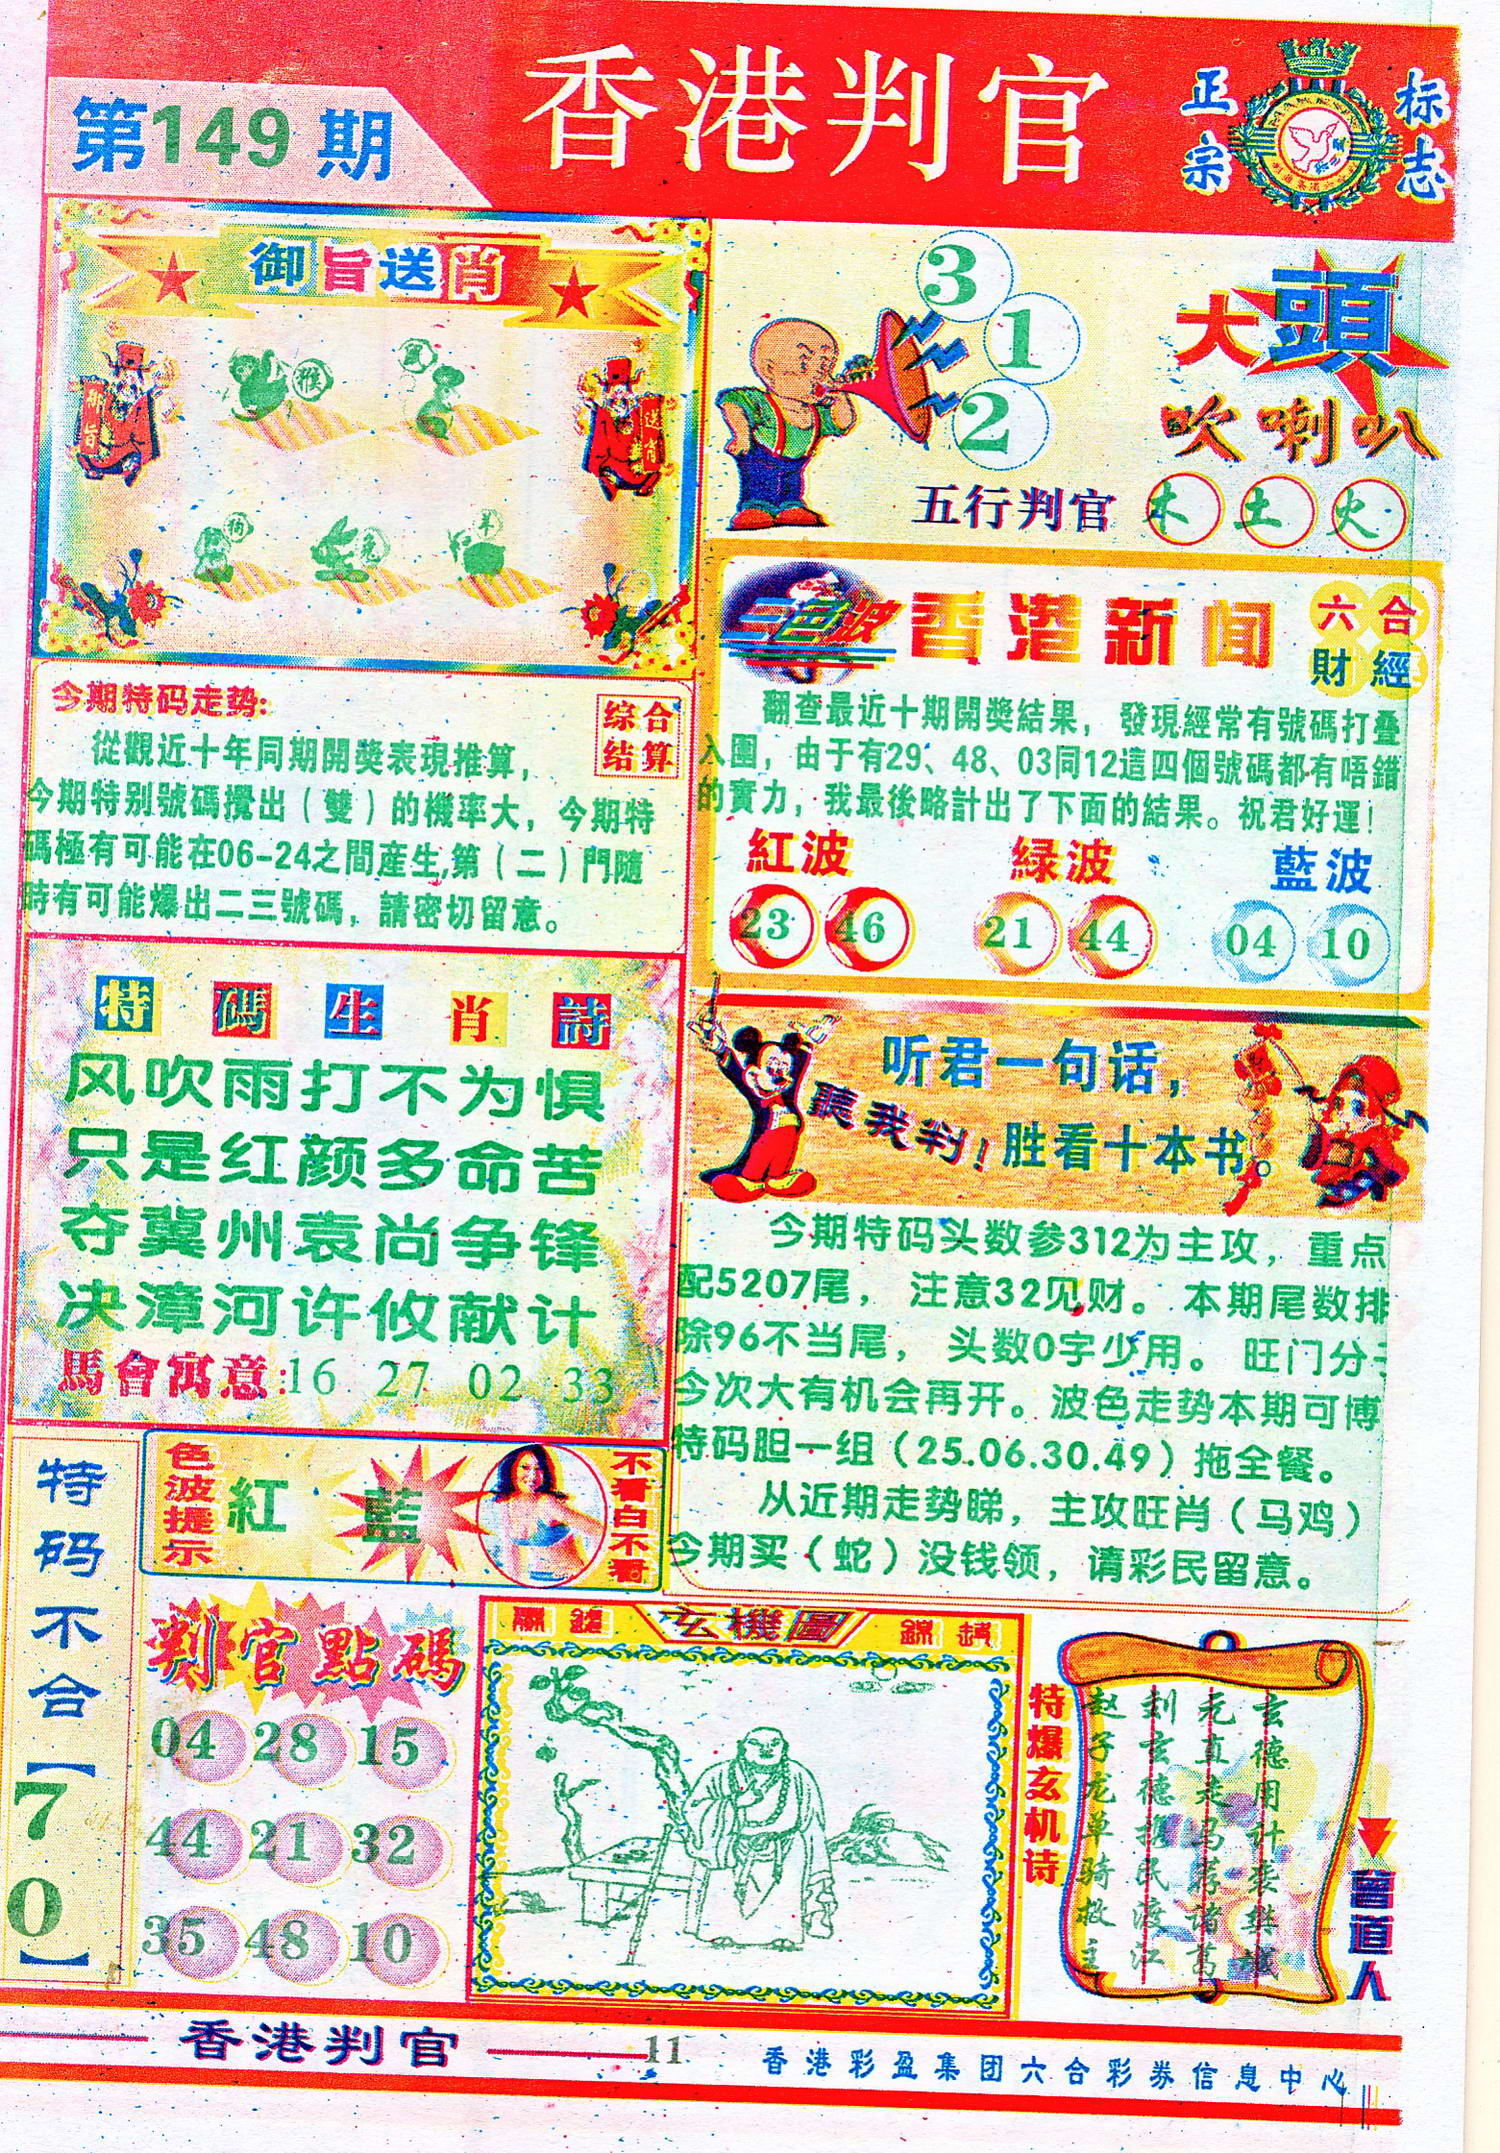 香港判官
第149期
正宗
标志
御旨送肖
御旨
送肖
猴
鼠
狗
兔
羊
3
1
2
大頭
吹喇叭
五行判官 木 土 火
今期特码走势:
综合
结算
從觀近十年同期開獎表現推算，
今期特别號碼攪出（雙）的機率大，今期特
碼極有可能在06-24之間産生,第（二）門隨
時有可能爆出二三號碼，請密切留意。
三色波
香港新闻
六合
財經
翻查最近十期開獎結果，發現經常有號碼打叠
入圍，由于有29、48、03同12這四個號碼都有唔錯
的實力，我最後略計出了下面的結果。祝君好運！
紅波 緑波 藍波
23 46 21 44 04 10
特碼生肖詩
风吹雨打不为惧
只是红颜多命苦
夺冀州袁尚争锋
决漳河许攸献计
馬會寓意:16 27 02 33
听君一句话，
聽我判!
胜看十本书。
今期特码头数参312为主攻，重点
配5207尾，注意32见财。本期尾数排
除96不当尾，头数0字少用。旺门分
今次大有机会再开。波色走势本期可博
特码胆一组（25.06.30.49）拖全餐。
从近期走势睇，主攻旺肖（马鸡）
今期买（蛇）没钱领，请彩民留意。
特码不合【70】
色波提示
紅 藍
不看白不看
判官點碼
04 28 15
44 21 32
35 48 10
玄機圖
特爆玄机诗
玄德用计袭樊城
元直走马荐诸葛
刘玄德携民渡江
赵子龙单骑救主
曾道人
香港判官
11
香港彩盈集团六合彩券信息中心